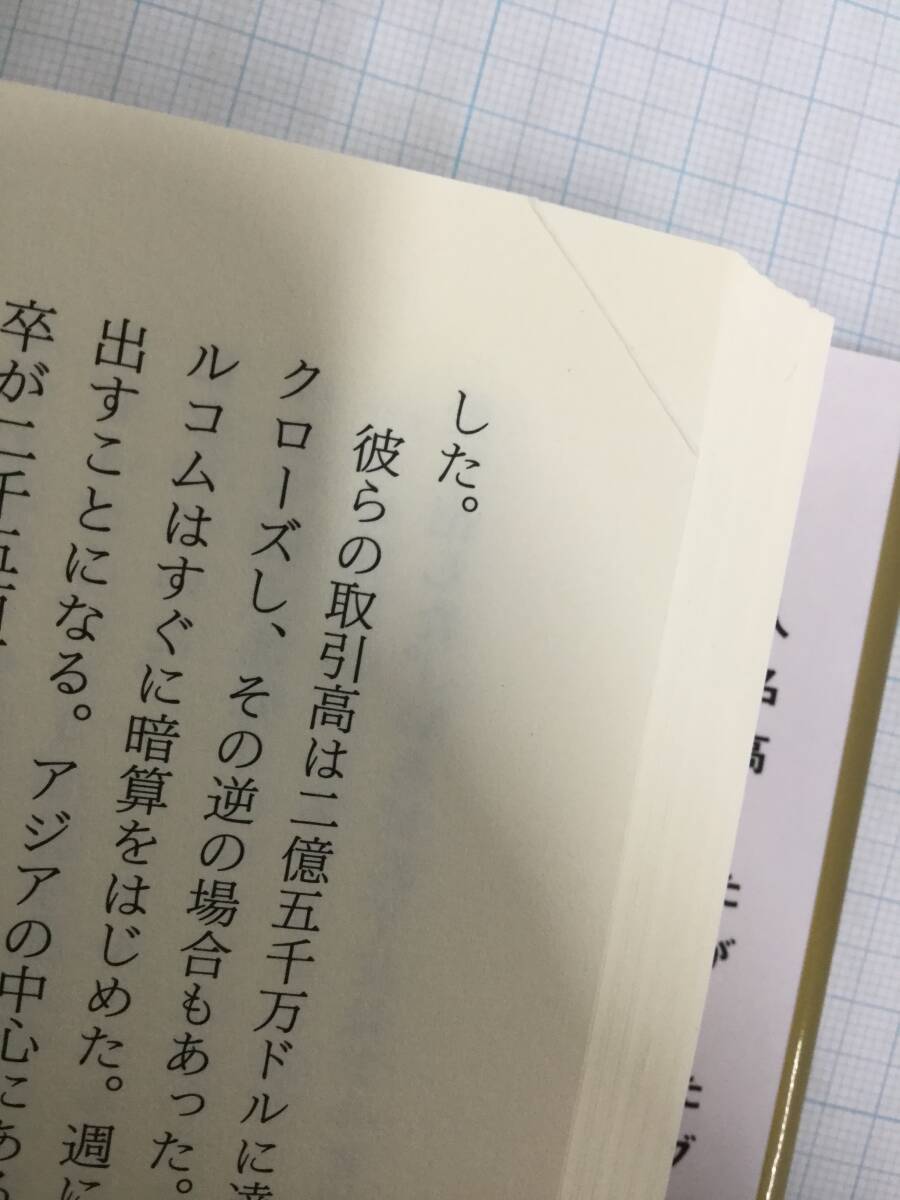 した。
彼らの取引高は二億五千万ドルに達
クローズし、その逆の場合もあった。
ルコムはすぐに暗算をはじめた。週に
出すことになる。アジアの中心にある
卒が二千五百